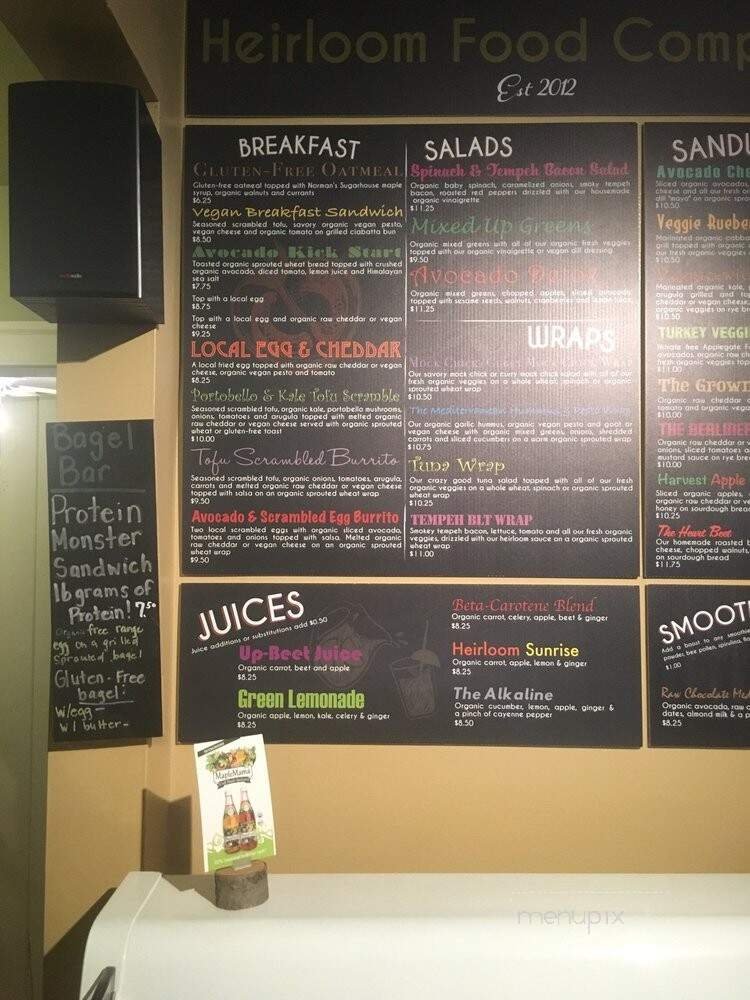 Heirloom Food Comp
Est 2012
BREAKFAST
GLUTEN-FREE OATMEAL
Gluten-free oatmeal topped with Norman's Sugarhouse maple
syrup, organic walnuts and currants
$6.25
Vegan Breakfast Sandwich
Seasoned scrambled tofu, savory organic vegan pesto,
vegan cheese and organic tomato on grilled ciabatta bun
$8.50
Avocado Kick Start
Toasted organic sprouted wheat bread topped with crushed
organic avocado, diced tomato, lemon juice and Himalayan
sea salt
$7.75
Top with a local egg
$8.75
Top with a local egg and organic raw cheddar or vegan
cheese
$9.25
LOCAL EGG & CHEDDAR
A local fried egg topped with organic raw cheddar or vegan
cheese, organic vegan pesto and tomato
$8.25
Portobello & Kale Tofu Scramble
Seasoned scrambled tofu, organic kale, portabella mushrooms,
onions, tomatoes and arugula topped with melted organic
raw cheddar or vegan cheese served with organic sprouted
wheat or gluten-free toast
$10.00
Tofu Scrambled Burrito
Seasoned scrambled tofu, organic onions, tomatoes, arugula,
carrots and melted organic raw cheddar or vegan cheese
topped with salsa on an organic sprouted wheat wrap
$9.50
Avocado & Scrambled Egg Burrito
Two local scrambled eggs with organic sliced avocado,
tomatoes and onions topped with salsa. Melted organic
raw cheddar or vegan cheese on an organic sprouted
wheat wrap
$9.50
SALADS
Spinach & Tempeh Bacon Salad
Organic baby spinach, caramelized onions, smoky tempeh
bacon, roasted red peppers drizzled with our housemade
organic vinaigrette
$11.25
Mixed Up Greens
Organic mixed greens with all of our organic fresh veggies
topped with our organic vinaigrette or vegan dill dressing
$9.50
Avocado
Organic mixed greens, chopped apples, sliced avocado
topped with sesame seeds, walnuts, cranberries and lemon juice
$11.25
WRAPS
Our savory mock chick or curry mock chick salad with all of our
fresh organic veggies on a whole wheat, spinach or organic
sprouted wheat wrap
$10.50
The Mediterranean Hummus & Pesto Wrap
Our organic garlic hummus, organic vegan pesto and goat or
vegan cheese with organic mixed greens, onions, shredded
carrots and sliced cucumbers on a warm organic sprouted wrap
$10.75
Tuna Wrap
Our crazy good tuna salad topped with all of our fresh
organic veggies on a whole wheat, spinach or organic sprouted
wheat wrap
$10.25
TEMPEH BLT WRAP
Smokey tempeh bacon, lettuce, tomato and all our fresh organic
veggies, drizzled with our heirloom sauce on a organic sprouted
wheat wrap
$11.00
SANDW
Avocado Che
Sliced organic avocados,
cheese and all our fresh or
dill "mayo" on organic spro
$10.50
Veggie Ruebe
Marinated organic cabba
grill topped with organic
our fresh organic veggies
$10.50
Marinated organic kale,
arugula grilled and
cheese or vegan cheese,
organic veggies on rye bre
$10.50
TURKEY VEGGI
Nitrate free Applegate F
avocados, organic raw ch
fresh organic veggies to
$11.00
The Growi
Organic raw cheddar
tomato and organic vege
$10.00
THE BERLINER
Organic raw cheddar or v
onions, sliced tomatoes a
mustard sauce on rye bre
$10.00
Harvest Apple
Sliced organic apples,
organic raw cheddar or ve
honey on sourdough bread
$10.25
The Heart Beet
Our homemade roasted b
cheese, chopped walnuts,
on sourdough bread
$11.75
Bagel
Bar
Protein
Monster
Sandwich
16 grams of
Protein! 7.50
Organic free range
egg on a grilled
sprouted bagel
Gluten-Free
bagel:
w/egg-
w/ butter-
JUICES
Juice additions or substitutions add $0.50
Up-Beet Juice
Organic carrot, beet and apple
$8.25
Green Lemonade
Organic apple, lemon, kale, celery & ginger
$8.25
Beta-Carotene Blend
Organic carrot, celery, apple, beet & ginger
$8.25
Heirloom Sunrise
Organic carrot, apple, lemon & ginger
$8.25
The Alkaline
Organic cucumber, lemon, apple, ginger &
a pinch of cayenne pepper
$8.50
SMOOT
Add a boost to any smoothie
powder, bee pollen, spirulina,
$1.00
Raw Chocolate Med
Organic avocado, raw c
dates, almond milk & a p
$8.25
MapleMama
menupix